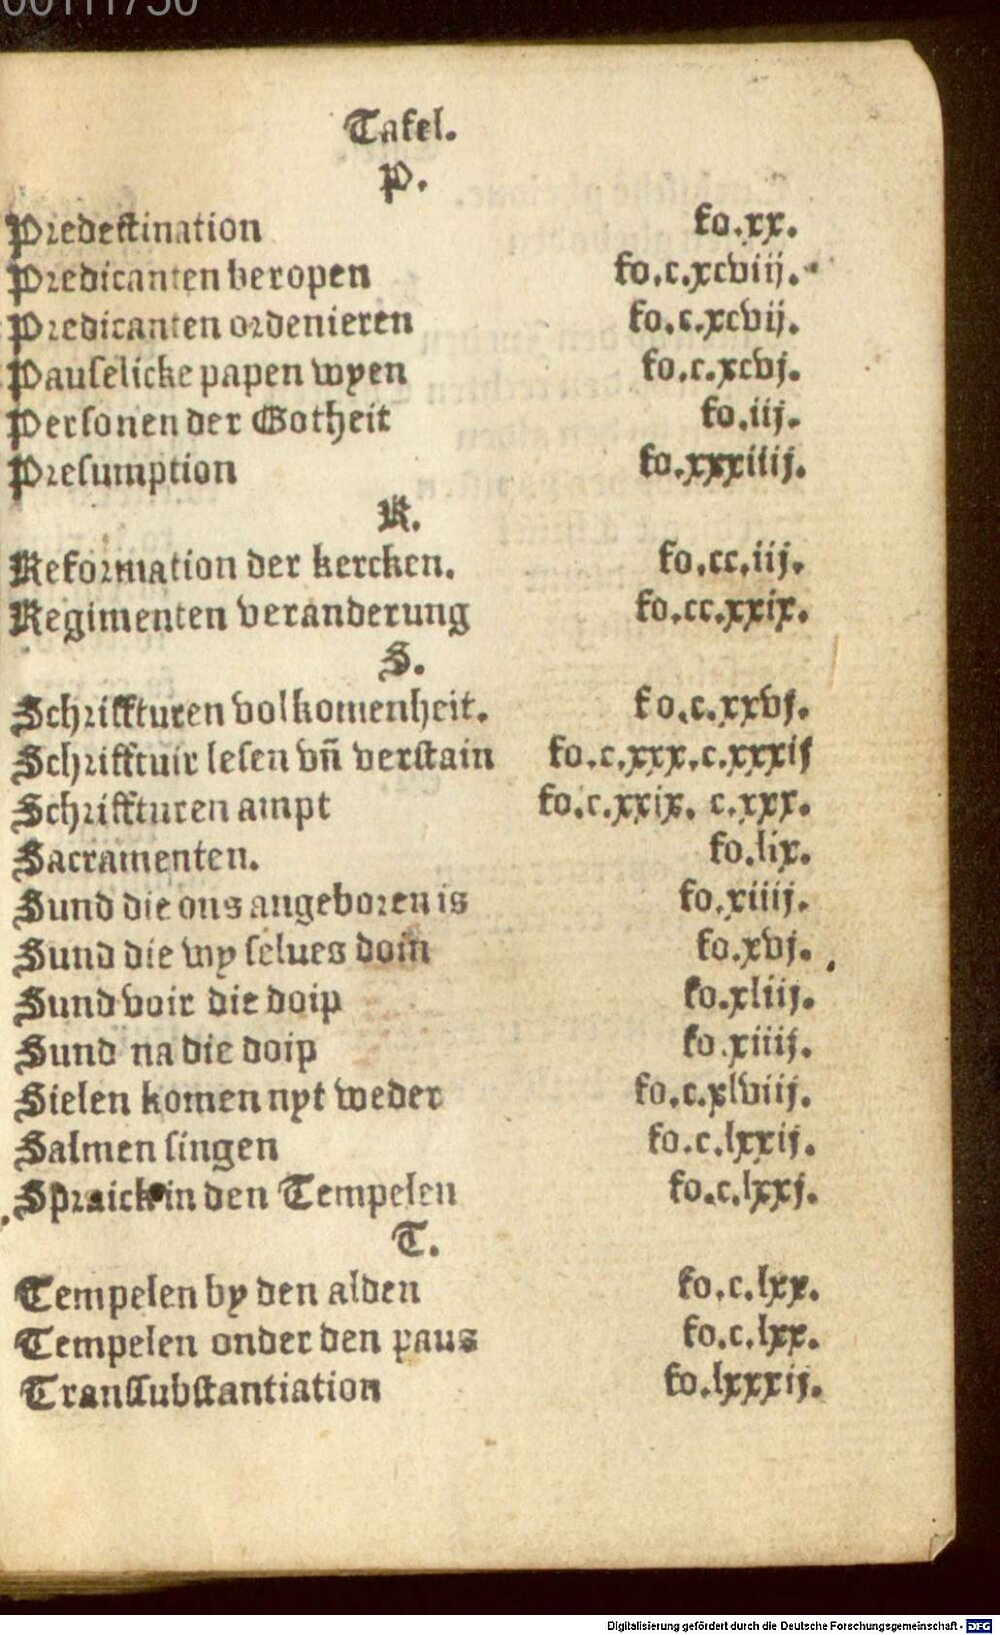 00111750
Tafel.
P.
Predestination fo.xx.
Predicanten beropen fo.c.xcviij.
Predicanten ordenieren fo.c.xcvij.
Pauselicke papen wyen fo.c.xcvj.
Personen der Gotheit fo.iij.
Presumption fo.xxxiiij.
R.
Reformation der kercken. fo.cc.iij.
Regimenten veranderung fo.cc.xxix.
S.
Schriffturen volkomenheit. fo.c.xxvj.
Schrifftuir lesen vñ verstain fo.c.xxx.c.xxxij
Schriffturen ampt fo.c.xxix. c.xxx.
Sacramenten. fo.lix.
Sund die ons angeboren is fo.xiiij.
Sund die wy selues doin fo.xvj.
Sund voir die doip fo.xliij.
Sund na die doip fo.xiiij.
Sielen komen nyt weder fo.c.xlviij.
Salmen singen fo.c.lxxij.
Spraick in den Tempelen fo.c.lxxj.
T.
Tempelen by den alden fo.c.lxx.
Tempelen onder den paus fo.c.lxx.
Transsubstantiation fo.lxxxij.
Digitalisierung gefördert durch die Deutsche Forschungsgemeinschaft - DFG